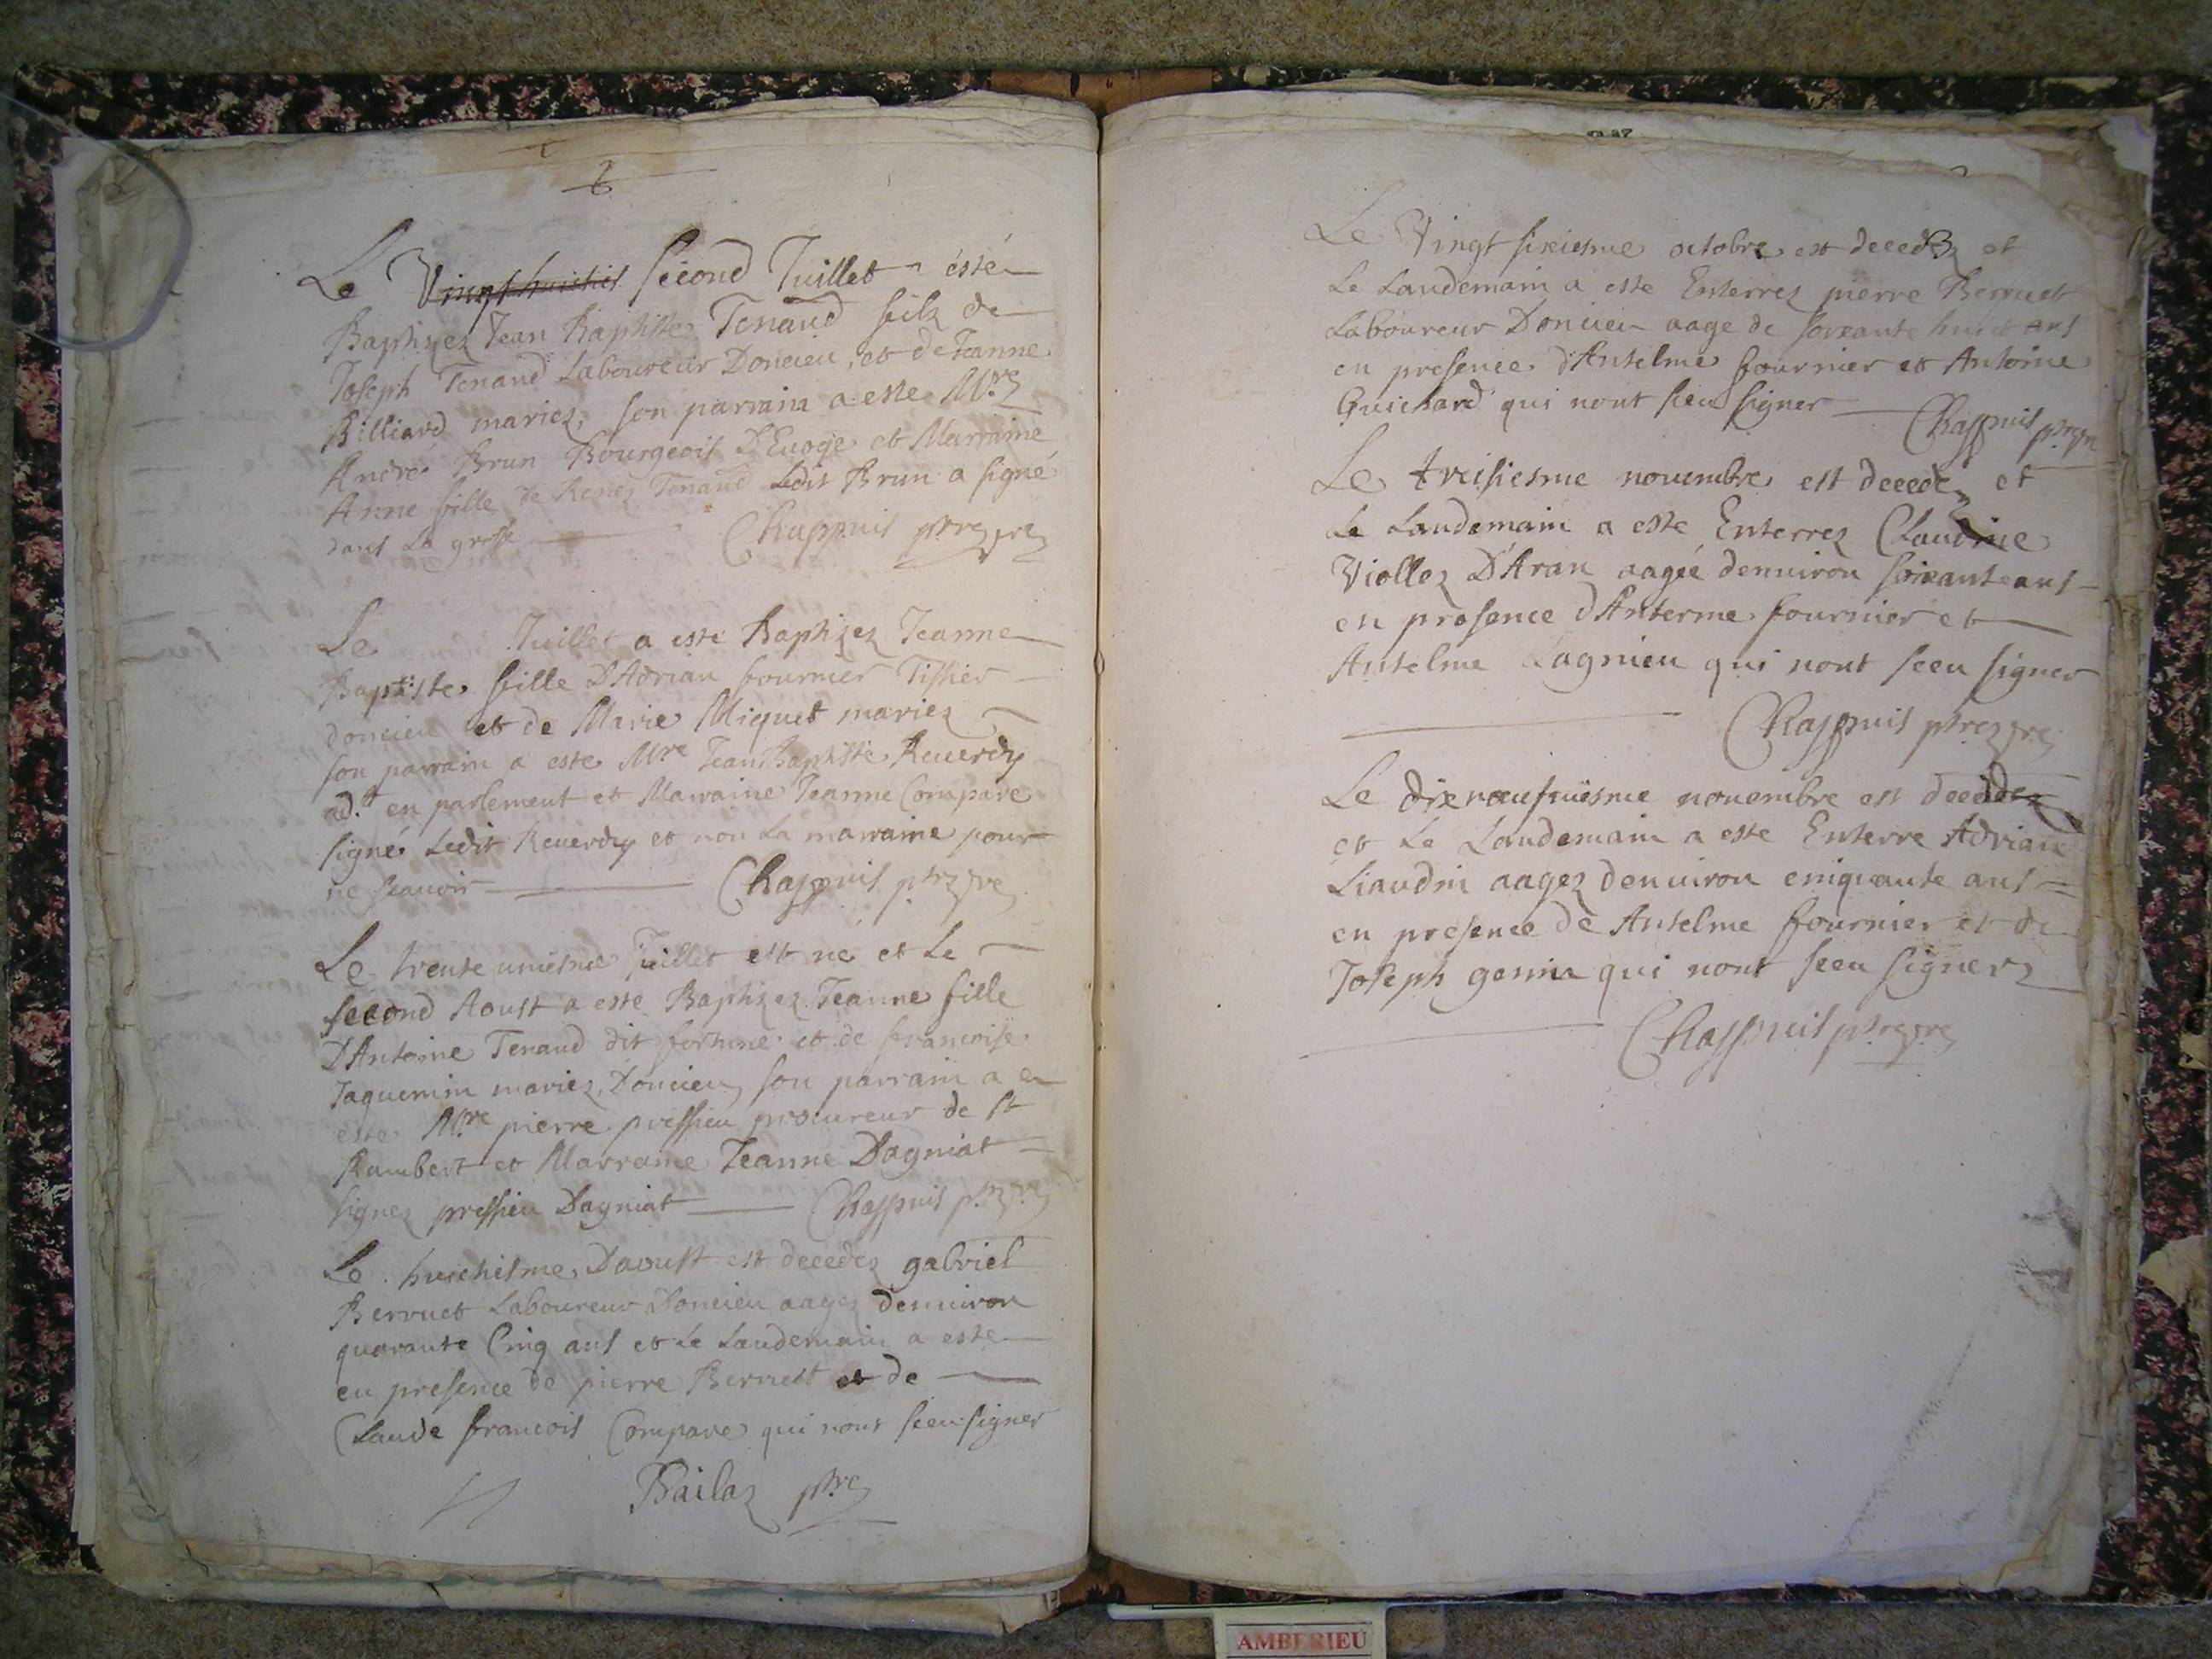 Le Vingt huictie second Juillet a esté
Baptizez Jean Baptiste Tenand filz de
Joseph Tenand Laboureur Doncieu, et de Jeanne
Billiard mariez, son parrain a este Mre
André Brun Bourgeois D'Euoge et Marraine
Anne fille de Renez Tenand Ledit Brun a signé
dans la grosse Chappuis ptre
Le Juillet a esté Baptizez Jeanne
Baptiste fille D'Adrian fournier Tissier
doncieu et de Marie Miquet mariez
son parrain a este Mre Jean Baptiste Reuerdy
adt en parlement et Marraine Jeanne Compare
signé Ledit Reuerdy et non La marraine pour
ne scauoir Chappuis ptre
Le trente uniesme Juillet est né et Le
second Aoust a este Baptizez Jeanne fille
D'Antoine Tenand dit fortune et de francoise
Jaquemin mariez, Doncieu, son parrain a
este Mre pierre pressieu procureur de St
Rambert et Marraine Jeanne Dagniat
signez pressieu Dagniat Chappuis ptre
Le huictiesme Daoust est decedez gabriel
Berruet Laboureur Doncieu aagez denuiron
quarante Cinq ans et Le Landemain a este
en presence de pierre Berruet et de
Claude francois Compare qui nont sceu signer
Bailaz ptre
Le Vingt sixiesme octobre est decedez et
Le Landemain a este Enterrez pierre Berruet
Laboureur Doncieu aage de soixante huict ans
en presence d'Antelme fournier et Antoine
Guichard qui nont sceu signer Chappuis ptre
Le treisiesme nouembre est decedez et
Le Landemain a este Enterrez Claudine
Viollez D'Aran aagée denuiron soixante ans
en presence d'Anterme fournier et
Antelme Lagnieu qui nont sceu signer
Chappuis ptre
Le dix neufuiesme nouembre est decedez
et Le Landemain a este Enterre Adrian
Liaudin aagez denuiron cinquante ans
en presence de Antelme fournier et de
Joseph genin qui nont sceu signer
Chappuis ptre
AMBERIEU